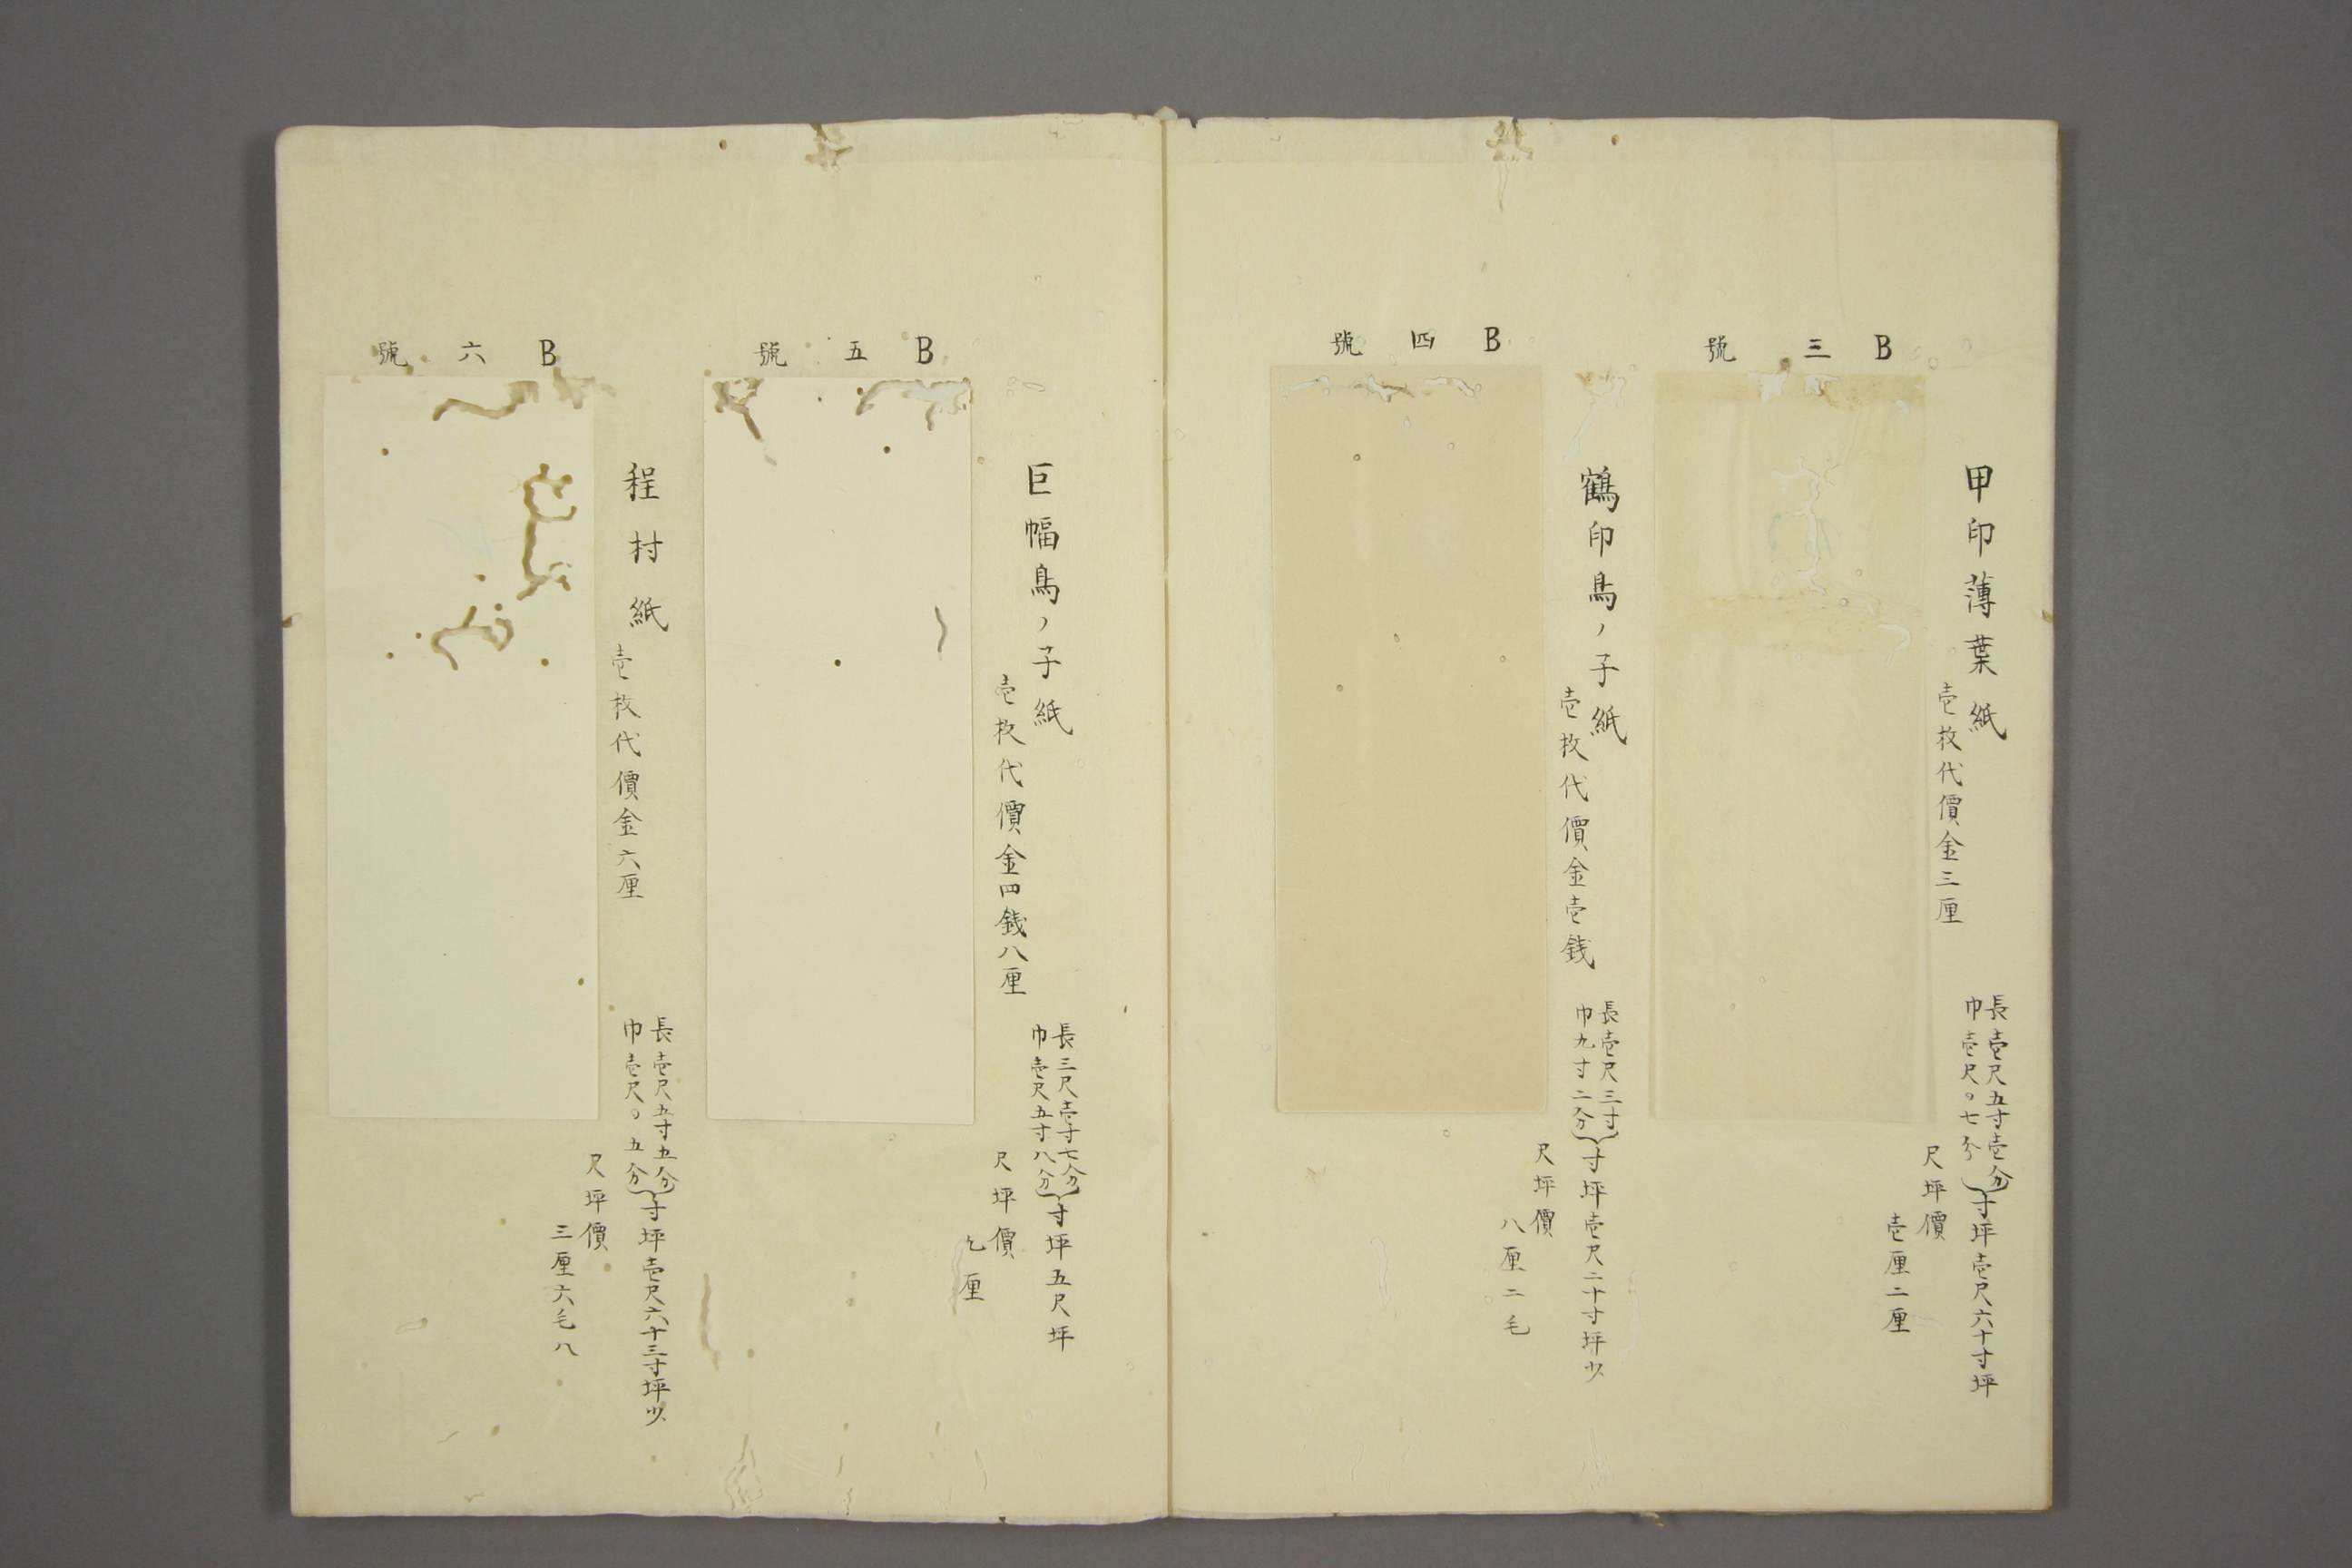 B三號
甲印薄葉紙
壱枚代價金三厘
長壱尺五寸壱分
巾壱尺〇七分
寸坪壱尺六十寸坪
尺坪價
壱厘二厘
B四號
鶴印鳥ノ子紙
壱枚代價金壱銭
長壱尺三寸
巾九寸二分
寸坪壱尺二十寸坪少
尺坪價
八厘二毛
B五號
巨幅鳥ノ子紙
壱枚代價金四銭八厘
長三尺壱寸七分
巾壱尺五寸八分
寸坪五尺坪
尺坪價
九厘
B六號
程村紙
壱枚代價金六厘
長壱尺五寸五分
巾壱尺〇五分
寸坪壱尺六十三寸坪少
尺坪價
三厘六毛八